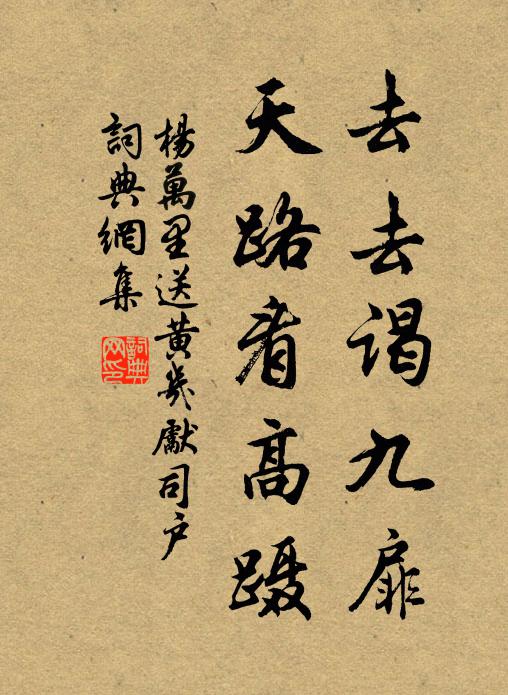 去去谒九扉
天路看高蹑
楊萬里送黄岁獻司户
詞典網集
詞典
网印